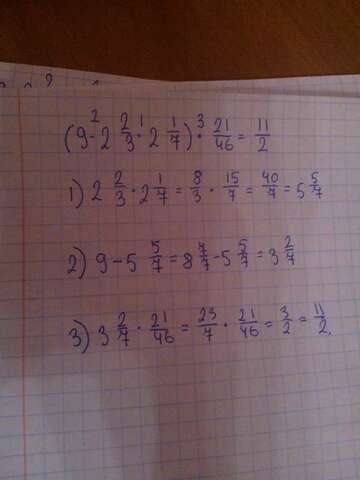 (9 -² 2 2/3 ·¹ 2 1/7) ·³ 21/46 = 11/2
1) 2 2/3 · 2 1/7 = 8/3 · 15/7 = 40/7 = 5 5/7
2) 9 - 5 5/7 = 8 7/7 - 5 5/7 = 3 2/7
3) 3 2/7 · 21/46 = 23/7 · 21/46 = 3/2 = 11/2,